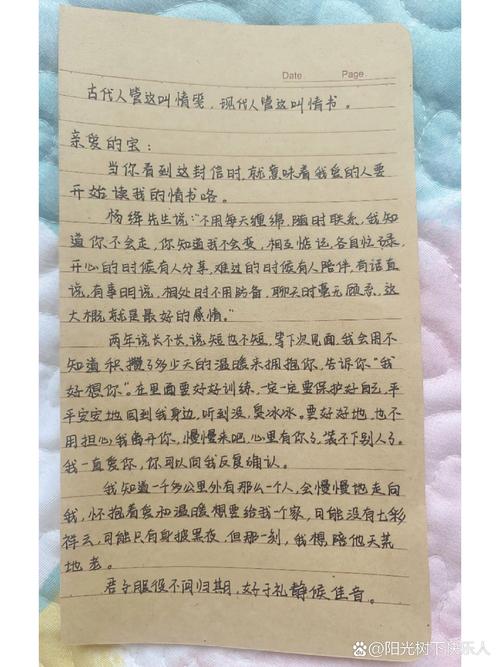 Date Page
古代人管这叫情笺，现代人管这叫情书。
亲爱的宝：
当你看到这封信时，就意味着我爱的人要
开始读我的情书咯。
杨绛先生说："不用每天缠绵，随时联系，我知
道你不会走，你知道我不会变，相互惦记，各自忙碌，
开心的时候有人分享，难过的时候有人陪伴，有话直
说，有事明说，相处时不用防备，聊天时毫无顾忌，这
大概就是最好的感情。"
两年说长不长，说短也不短，等下次见面，我会用不
知道积攒了多少天的温暖来拥抱你，告诉你"我
好想你"。在里面要好好训练，一定一定要保护好自己，平
平安安地回到我身边，听到没，臭冰冰。要好好地，也不
用担心我离开你，慢慢来吧，心里有你了，装不下别人了。
我一直爱你，你可以向我反复确认。
我知道一千多公里外有那么一个人，会慢慢地走向
我，怀抱着爱和温暖想要给我一个家，可能没有七彩
祥云，可能只有身披黑夜，但那一刻，我想陪他天荒
地老。
君子服役不问归期，好于礼静候佳音。
@阳光树下快乐人